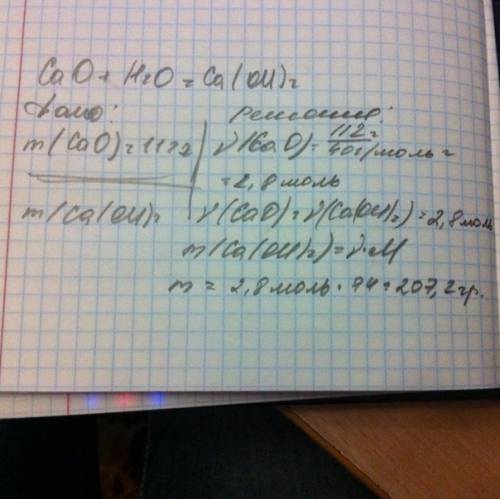 CaO + H₂O = Ca(OH)₂
Дано:
m(CaO) = 112г
m(Ca(OH)₂
Решение:
ν(CaO) = 112г / 40г/моль =
= 2,8 моль
ν(CaO) = ν(Ca(OH)₂) = 2,8 моль
m(Ca(OH)₂) = ν·M
m = 2,8 моль · 74 = 207,2 гр.